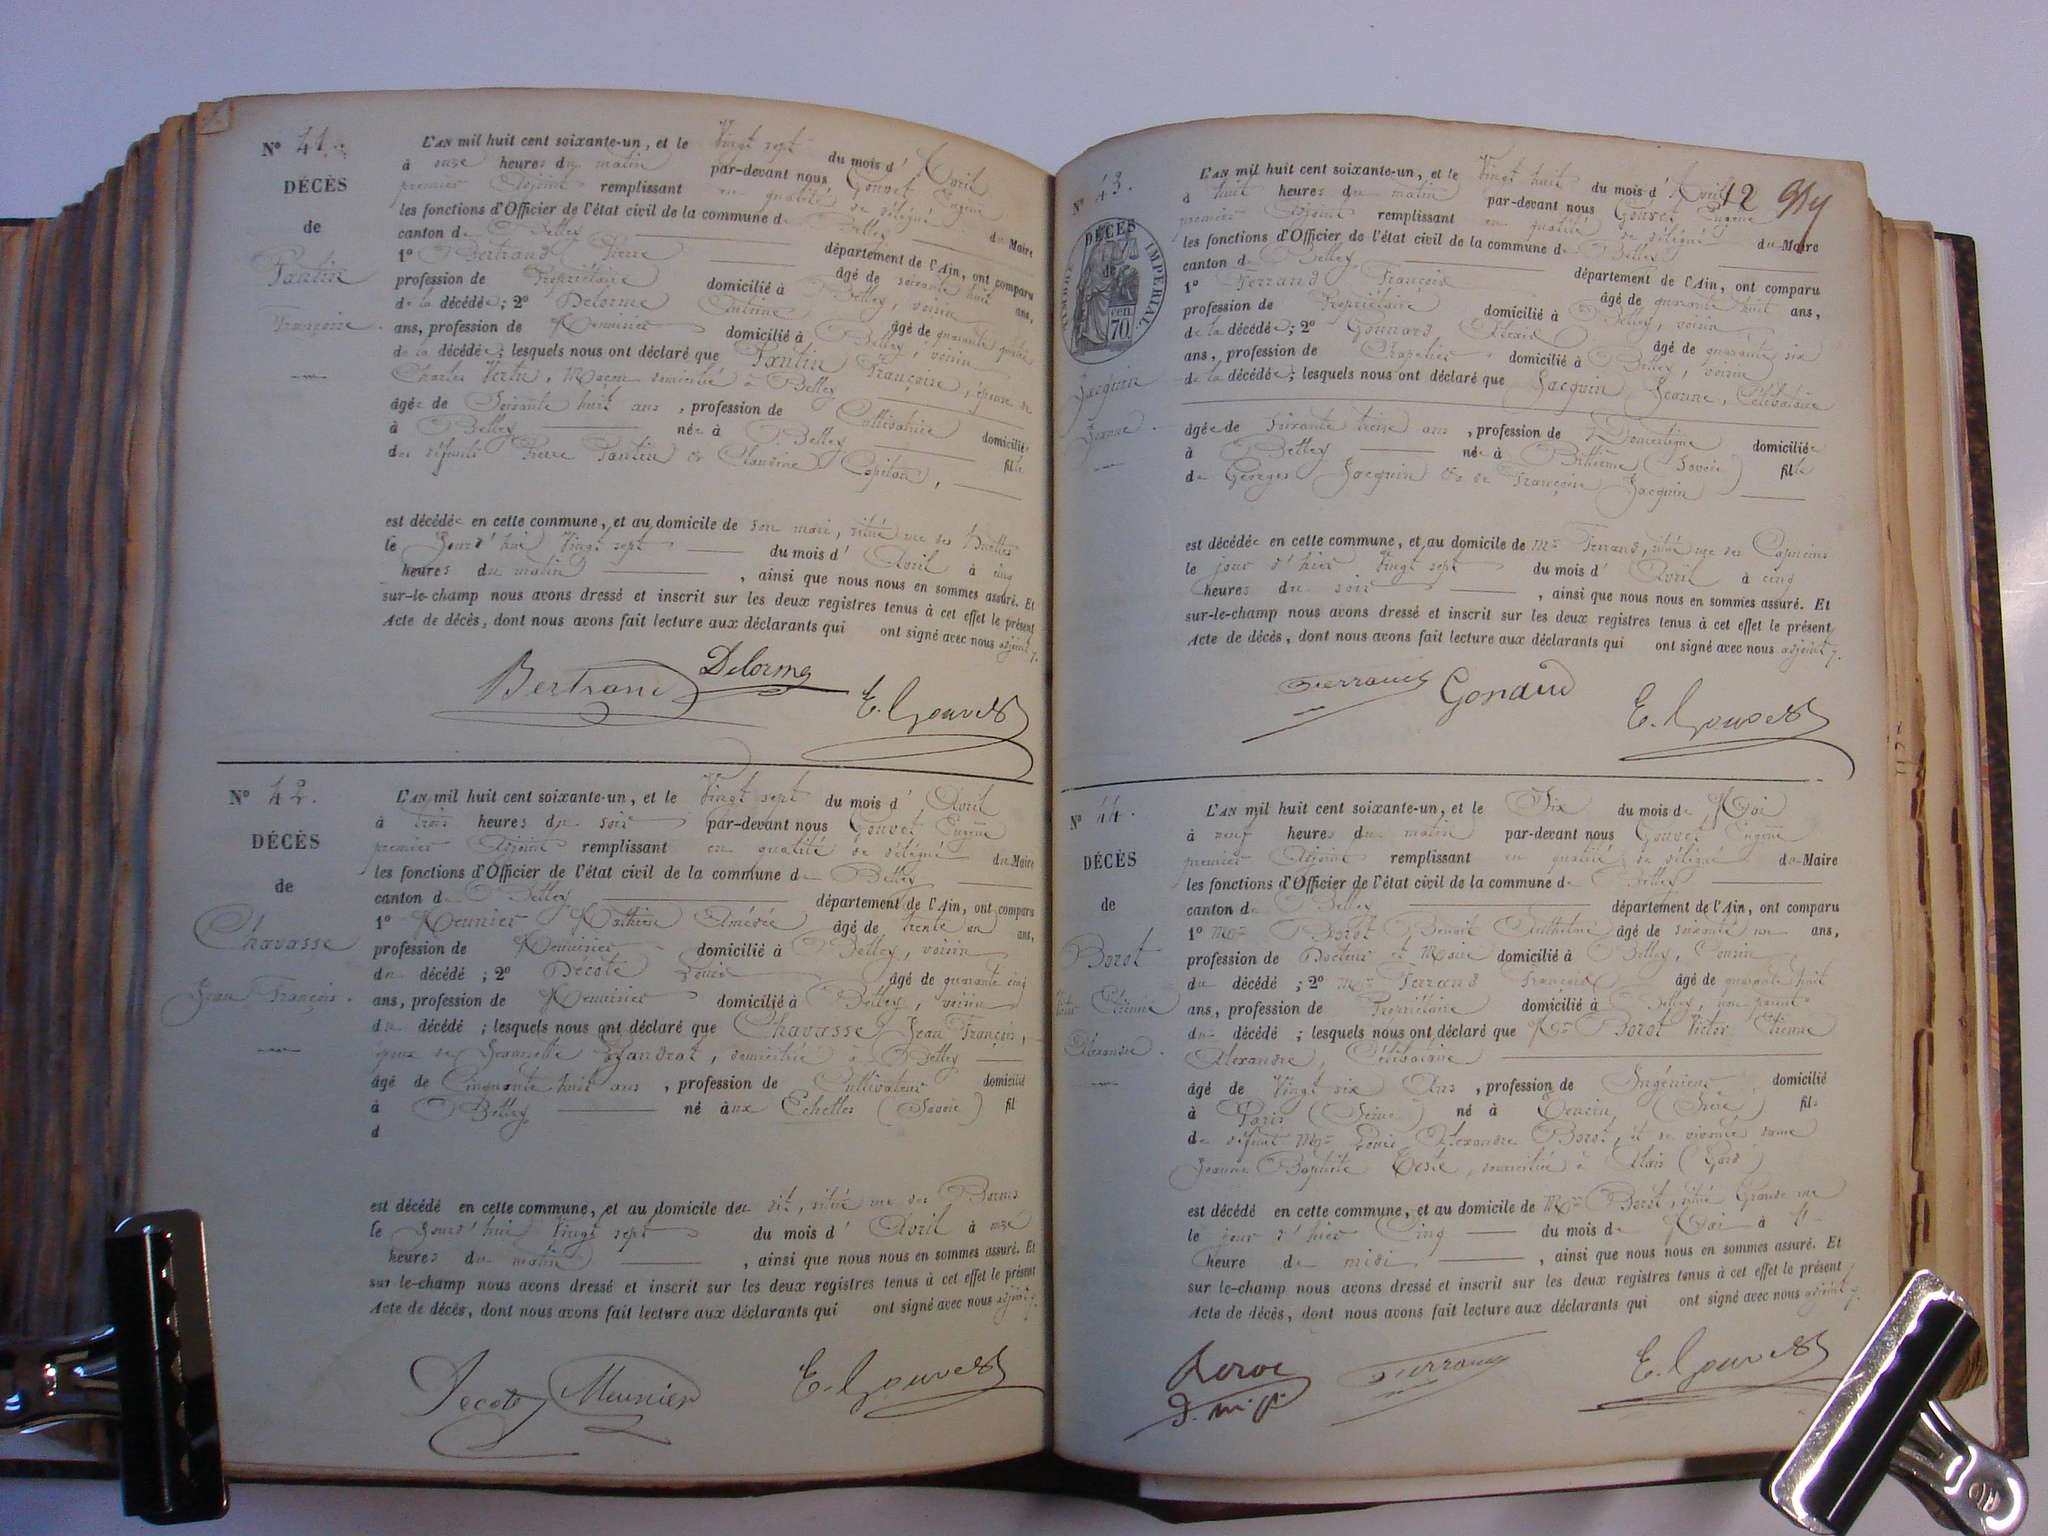 N° 41.
DÉCÈS
de
Pantin
Françoise.
L'AN mil huit cent soixante-un, et le Vingt sept du mois d'Avril
à onze heures du matin par-devant nous Gouvet Eugène
premier Adjoint remplissant en qualité de délégué du Maire
les fonctions d'Officier de l'état civil de la commune de Belley
canton de Belley département de l'Ain, ont comparu
1° Bertrand Pierre âgé de soixante huit ans,
profession de Propriétaire domicilié à Belley, voisin
de la décédée; 2° Delorme Antoine âgé de quarante quatre
ans, profession de Menuisier domicilié à Belley, voisin
de la décédée; lesquels nous ont déclaré que Pantin Françoise, épouse de
Charles Vertu, Maçon domicilié à Belley
âgée de Soixante huit ans, profession de Cultivatrice domiciliée
à Belley née à Belley fille
des défunts Pierre Pantin & Claudine Capitan,
est décédée en cette commune, et au domicile de son mari, situé rue des
le Jourd'hui Vingt sept du mois d'Avril à cinq
heures du matin, ainsi que nous nous en sommes assuré. Et
sur-le-champ nous avons dressé et inscrit sur les deux registres tenus à cet effet le présent
Acte de décès, dont nous avons fait lecture aux déclarants qui ont signé avec nous adjoint
Bertrand Delorme E. Gouvet
N° 42.
DÉCÈS
de
Chavasse
Jean François.
L'AN mil huit cent soixante-un, et le Vingt sept du mois d'Avril
à trois heures du soir par-devant nous Gouvet Eugène
premier Adjoint remplissant en qualité de délégué du Maire
les fonctions d'Officier de l'état civil de la commune de Belley
canton de Belley département de l'Ain, ont comparu
1° Meunier Mathieu Amédée âgé de trente un ans,
profession de Menuisier domicilié à Belley, voisin
du décédé; 2° Décote Louis âgé de quarante cinq
ans, profession de Menuisier domicilié à Belley, voisin
du décédé; lesquels nous ont déclaré que Chavasse Jean François,
époux de Jeannette, domicilié à Belley
âgé de Cinquante huit ans, profession de Cultivateur domicilié
à Belley né aux Echelles (Savoie) fil
d
est décédé en cette commune, et au domicile du dit, situé rue des Barons
le Jourd'hui Vingt sept du mois d'Avril à onze
heures du matin, ainsi que nous nous en sommes assuré. Et
sur-le-champ nous avons dressé et inscrit sur les deux registres tenus à cet effet le présent
Acte de décès, dont nous avons fait lecture aux déclarants qui ont signé avec nous adjoint
Decote Meunier E. Gouvet
12
N° 43.
DÉCÈS
de
TIMBRE IMPÉRIAL
70 cen
Jacquin
Jeanne.
L'AN mil huit cent soixante-un, et le Vingt huit du mois d'Avril
à huit heures du matin par-devant nous Gouvet Eugène
premier Adjoint remplissant en qualité de délégué du Maire
les fonctions d'Officier de l'état civil de la commune de Belley
canton de Belley département de l'Ain, ont comparu
1° Ferrand François âgé de quarante huit ans,
profession de Propriétaire domicilié à Belley, voisin
de la décédée; 2° Gonnard Alexis âgé de quarante six
ans, profession de Chapelier domicilié à Belley, voisin
de la décédée; lesquels nous ont déclaré que Jacquin Jeanne, Célibataire
âgée de Soixante treize ans, profession de Domestique domiciliée
à Belley née à (Savoie) fille
de Georges Jacquin & de Françoise Jacquin
est décédée en cette commune, et au domicile de Mr Ferrand, situé rue des Capucins
le jour d'hier Vingt sept du mois d'Avril à cinq
heures du soir, ainsi que nous nous en sommes assuré. Et
sur-le-champ nous avons dressé et inscrit sur les deux registres tenus à cet effet le présent
Acte de décès, dont nous avons fait lecture aux déclarants qui ont signé avec nous adjoint
Ferrand Gonard E. Gouvet
N° 44.
DÉCÈS
de
Borot
Victor Etienne
Alexandre.
L'AN mil huit cent soixante-un, et le Six du mois de Mai
à neuf heures du matin par-devant nous Gouvet Eugène
premier Adjoint remplissant en qualité de délégué du Maire
les fonctions d'Officier de l'état civil de la commune de Belley
canton de Belley département de l'Ain, ont comparu
1° Mr Borot Benoit Anthelme âgé de soixante un ans,
profession de Docteur et Maire domicilié à Belley, Cousin
du décédé; 2° Mr Ferrand François âgé de quarante huit
ans, profession de Propriétaire domicilié à Belley, non parent
du décédé; lesquels nous ont déclaré que Mr Borot Victor Etienne
Alexandre, Célibataire
âgé de Vingt six Ans, profession de Ingénieur domicilié
à Paris (Seine) né à (Isère) fils
de défunt Mr Louis Alexandre Borot, et de vivante dame
Jeanne Baptiste Teste, domiciliée à Alais (Gard)
est décédé en cette commune, et au domicile de Mr Borot, situé Grande rue
le jour d'hier Cinq du mois de Mai à l'
heure de midi, ainsi que nous nous en sommes assuré. Et
sur le-champ nous avons dressé et inscrit sur les deux registres tenus à cet effet le présent
Acte de décès, dont nous avons fait lecture aux déclarants qui ont signé avec nous adjoint
Borot Ferrand E. Gouvet
D. m. p.